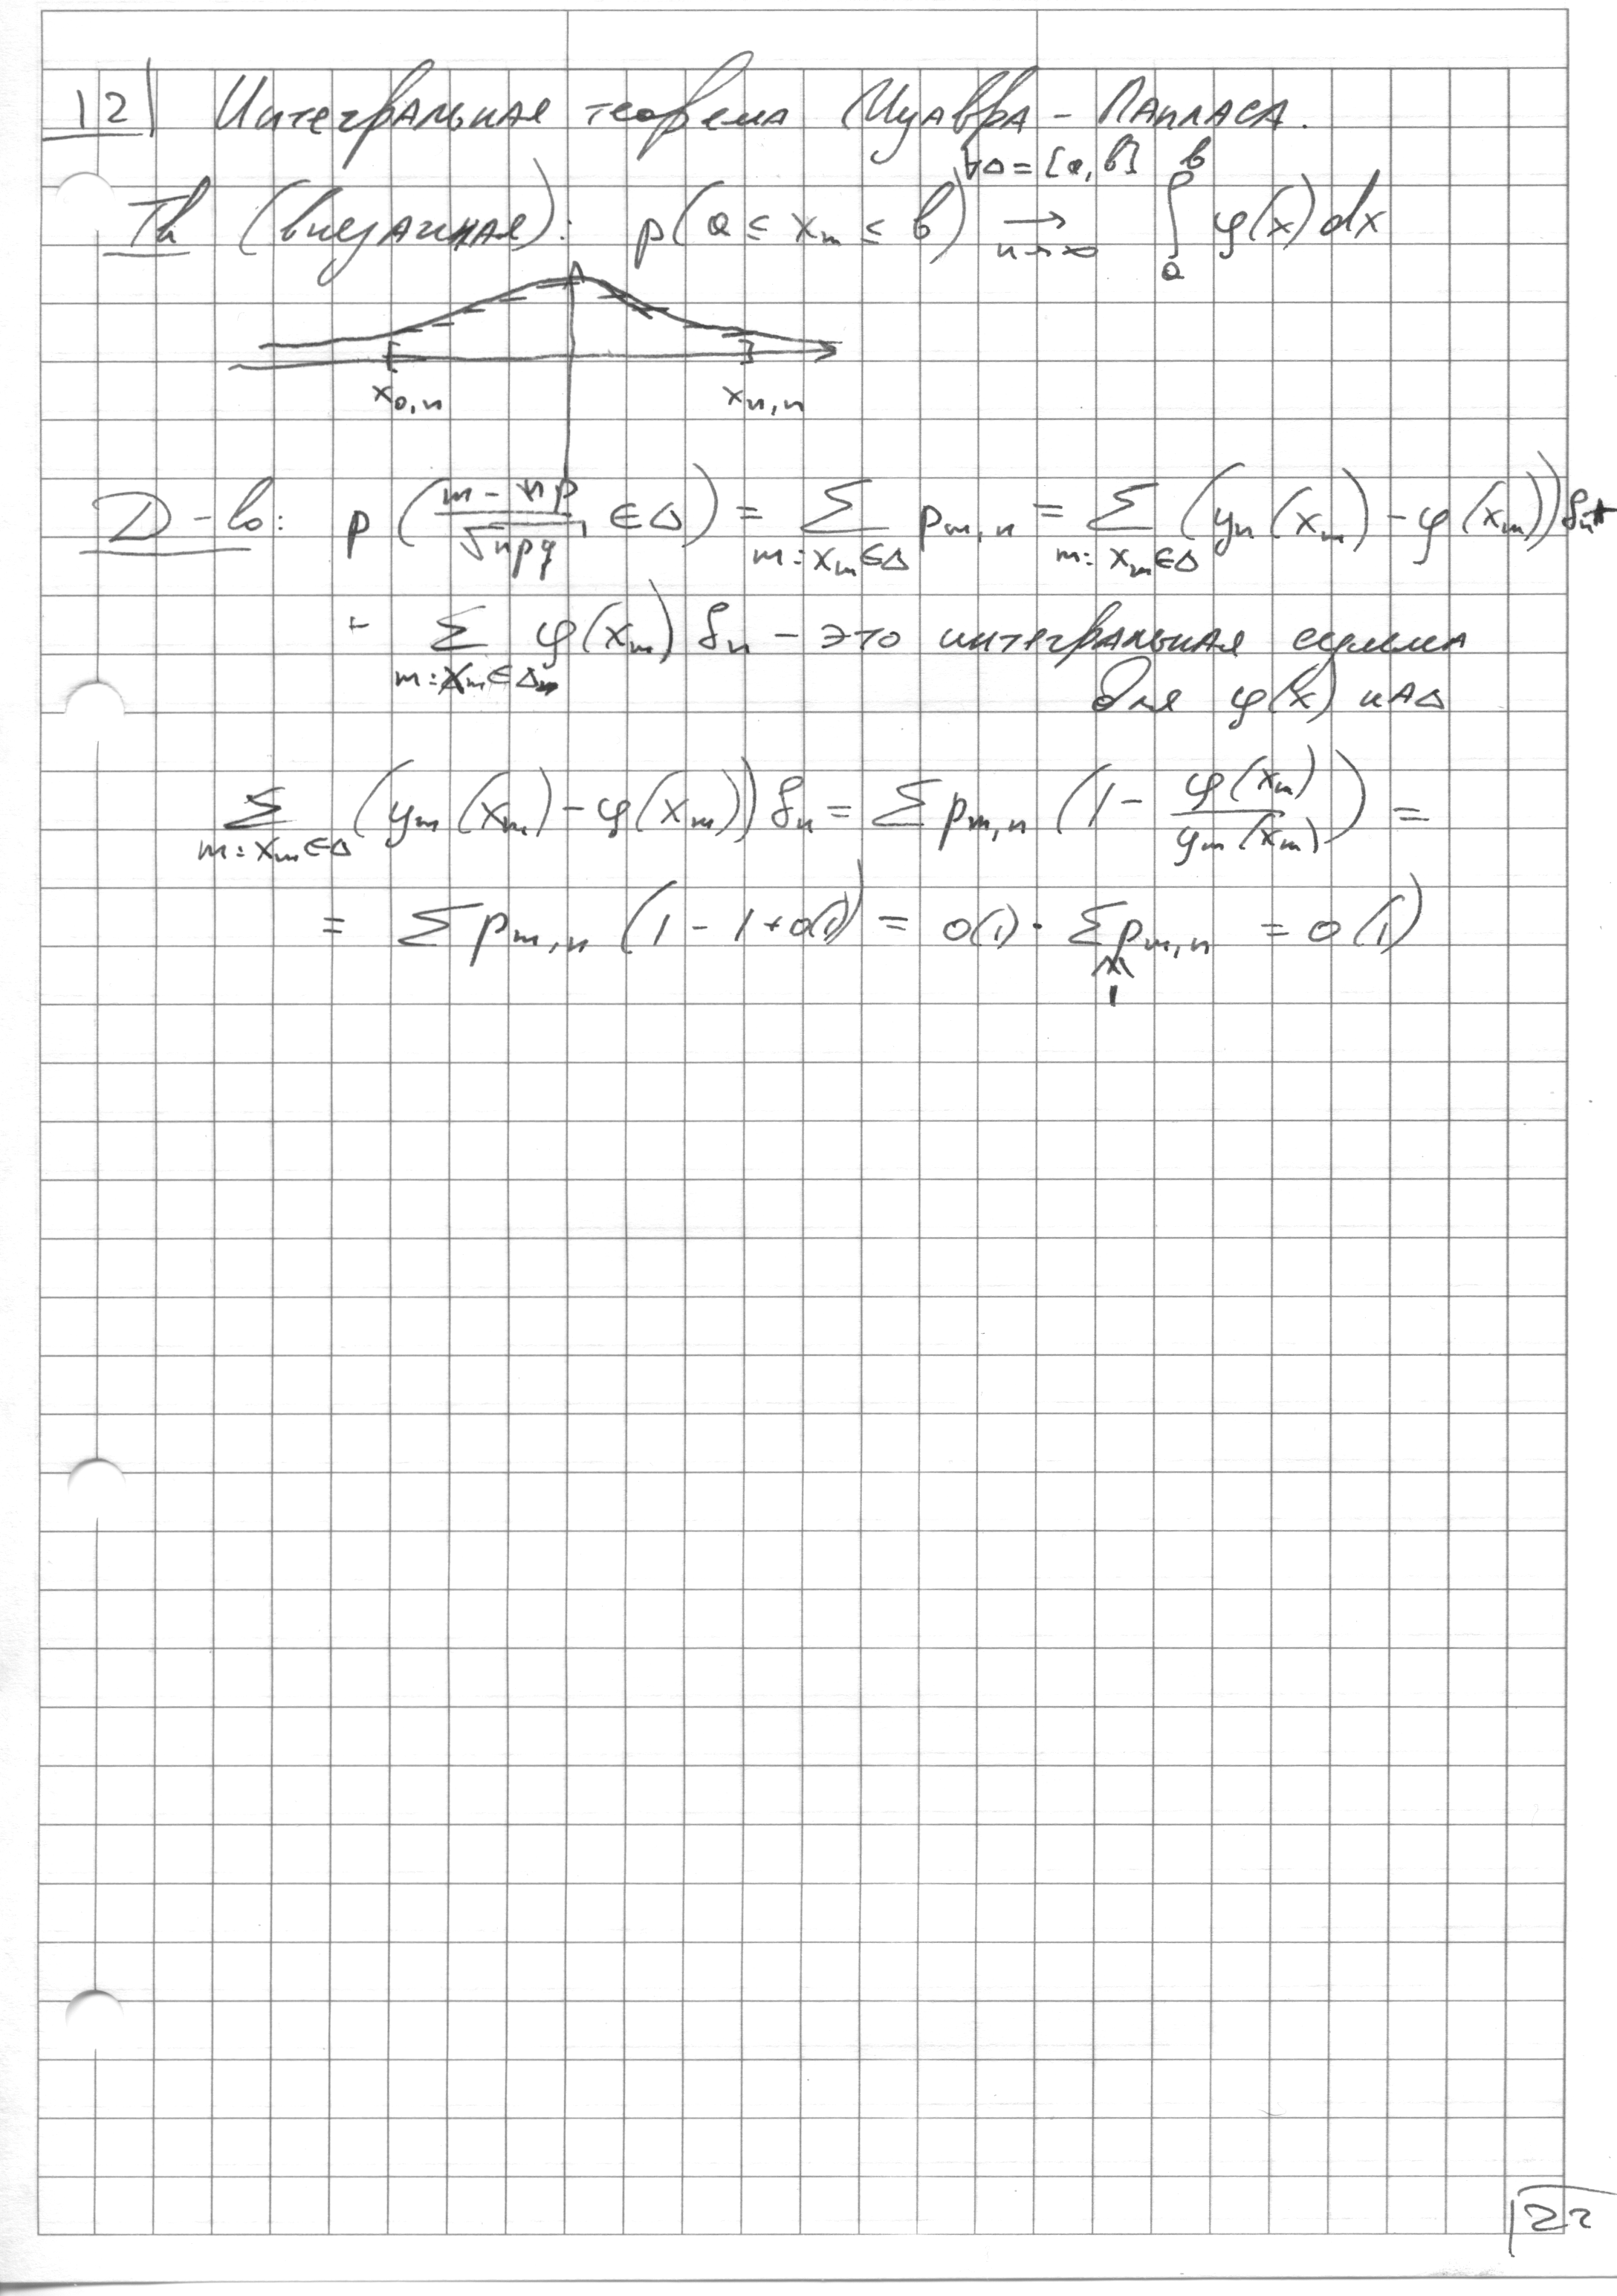 12) Интегральная теорема Муавра - Лапласа.
∀Δ = [a, b]
Th (внезапная): p(a ≤ xₘ ≤ b) → n→∞ ∫ₐᵇ φ(x) dx
x₀,ₙ xₙ,ₙ
D-во: p((m - np)/√(npq) ∈ Δ) = Σ_{m: xₘ∈Δ} pₘ,ₙ = Σ_{m: xₘ∈Δ} (yₙ(xₘ) - φ(xₘ)) δₙ +
+ Σ_{m: xₘ∈Δₙ} φ(xₘ) δₙ - это интегральная сумма
для φ(x) на Δ
Σ_{m: xₘ∈Δ} (yₘ(xₘ) - φ(xₘ)) δₙ = Σ pₘ,ₙ (1 - φ(xₘ)/yₘ(xₘ)) =
= Σ pₘ,ₙ (1 - 1 + o(1)) = o(1) · Σ pₘ,ₙ = o(1)
≤
1
22